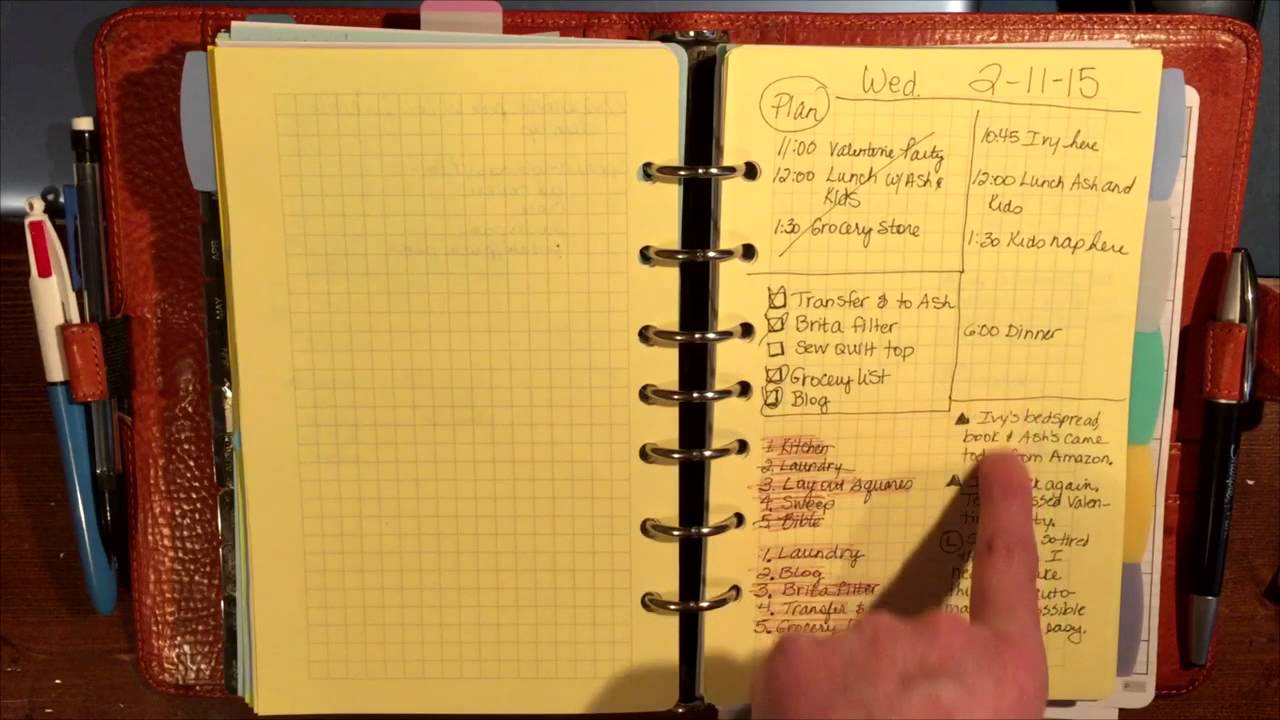 Wed. 2-11-15
Plan
11:00 Valentine Party
12:00 Lunch w/ Ash &
Kids
1:30 Grocery Store
10:45 Ivy here
12:00 Lunch Ash and
Kids
1:30 Kids nap here
6:00 Dinner
Transfer $ to Ash
Brita filter
Sew Quilt top
Grocery list
Blog
1. Kitchen
2. Laundry
3. Lay out squares
4. Sweep
5. Bible
1. Laundry
2. Blog
3. Brita filter
4. Transfer $
5. Grocery
Ivy's bedspread,
book & Ash's came
from Amazon.
again.
Valen-
L
so tired
I
easy.
APR
MAY